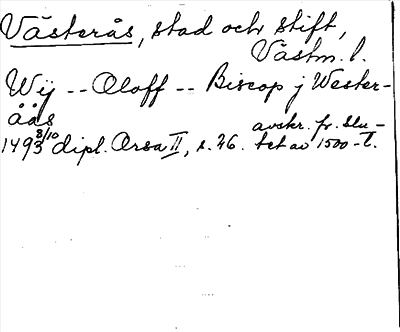 Västerås, stad och stift,
Västm. l.
Wij -- Oloff -- Biscop j Wester-
åås
1493 8/10 dipl. Orsa II, s. 26. avskr. fr. slu-
tet av 1500-t.